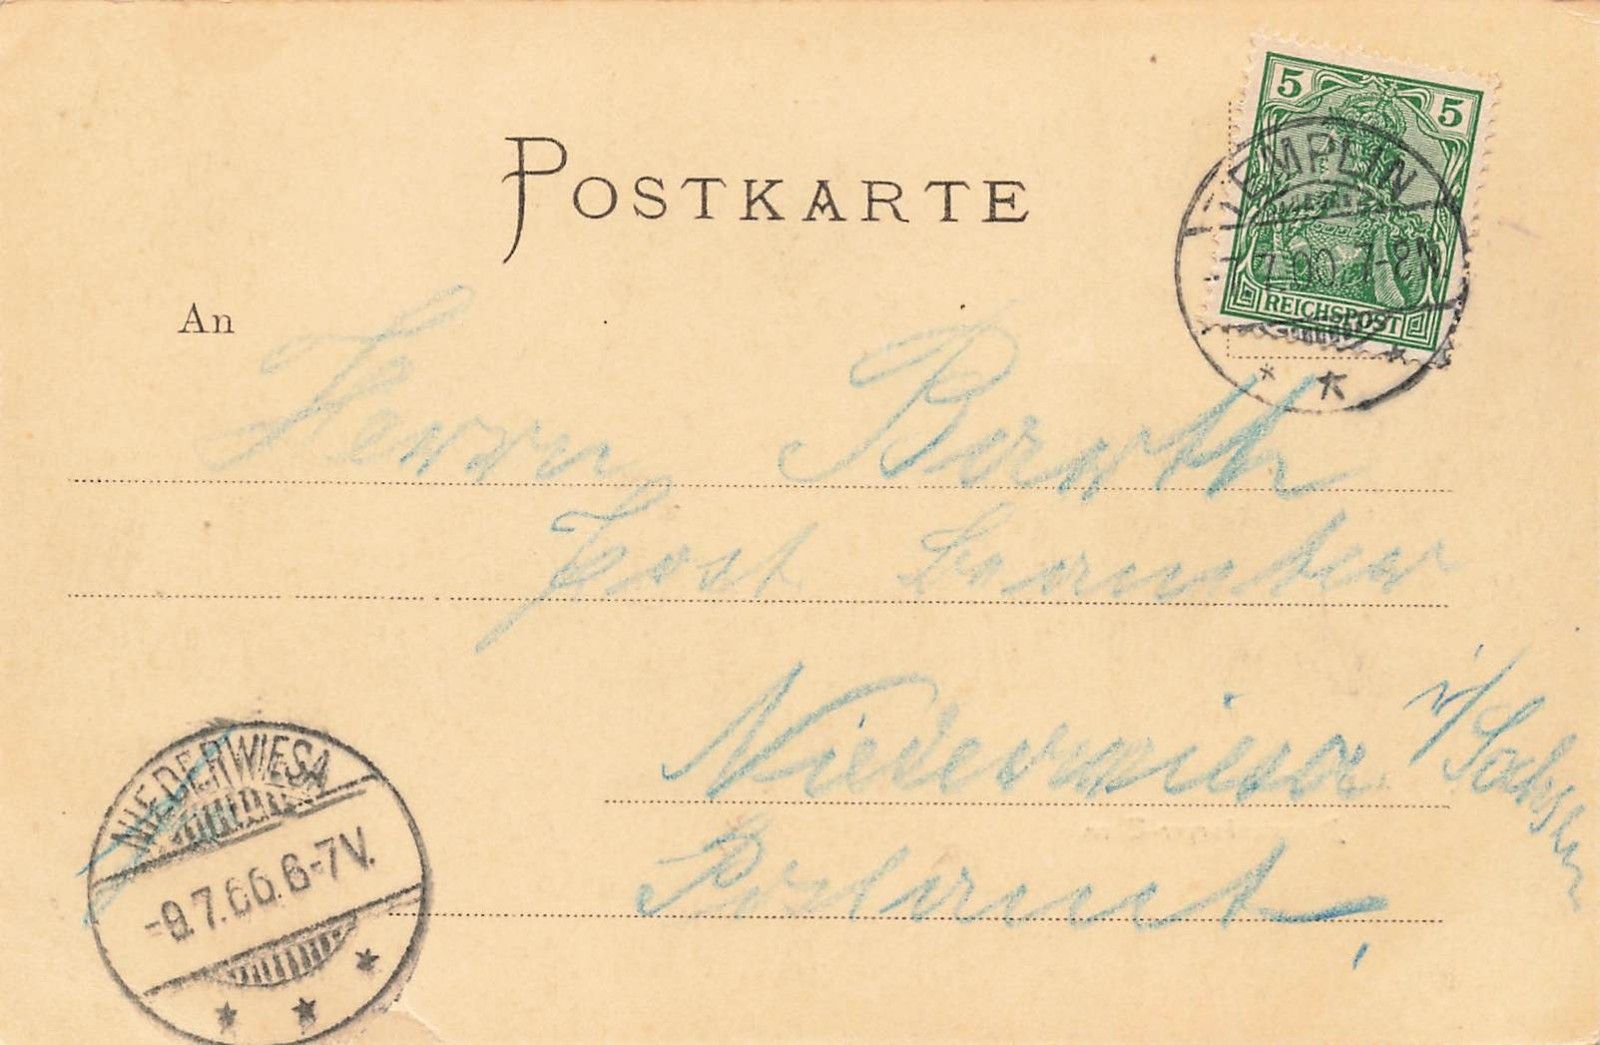 POSTKARTE
5 5
TEMPLIN
7.00. 7-8N
REICHSPOST
An
Herrn Barth
Post Beamter
Niederwiesa i/Sachsen
Postamt,
NIEDERWIESA
-9.7.00.6-7V.